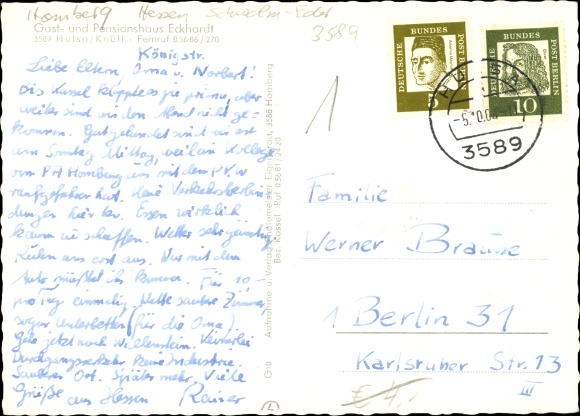 Homberg Hessen Schwalm-Eder
Gast- und Pensionshaus Eckhardt
3589 Hülsa/Knüll - Fernruf 05686/270
3589
Königstr.
Liebe Eltern, Oma u. Norbert!
Bis Kassel klappte es prima, aber
weiter sind wir den Abend nicht ge-
kommen. Gut gelandet sind wir erst
am Sonntag Mittag, weil ein Kollege
von PH Homburg uns mit dem PKW
raufgefahren hat. Keine Verkehrsverbin-
dungen hier her. Essen wirklich
kaum zu schaffen. Wetter sehr günstig
Nur mit dem
Auto müßtet ihr kommen. Für 10,-
pro Tag einmalig. Nette saubere Zimmer,
sogar Unterbetten (für die Oma).
Gehe jetzt nach Wallenstein. Keinerlei
Durchgangsverkehr keine Industrie.
Sauberer Ort. Später mehr. Viele
Grüße aus Hessen Rainer
G10 Aufnahme u. Verlag
Bez. Kassel · Ruf 05681/2420
3588 Homberg
1
DEUTSCHE BUNDESPOST BERLIN
5
DEUTSCHE BUNDESPOST BERLIN
10
3589
Familie
Werner Braune
1 Berlin 31
Karlsruher Str. 13
III
€ 4,-
L